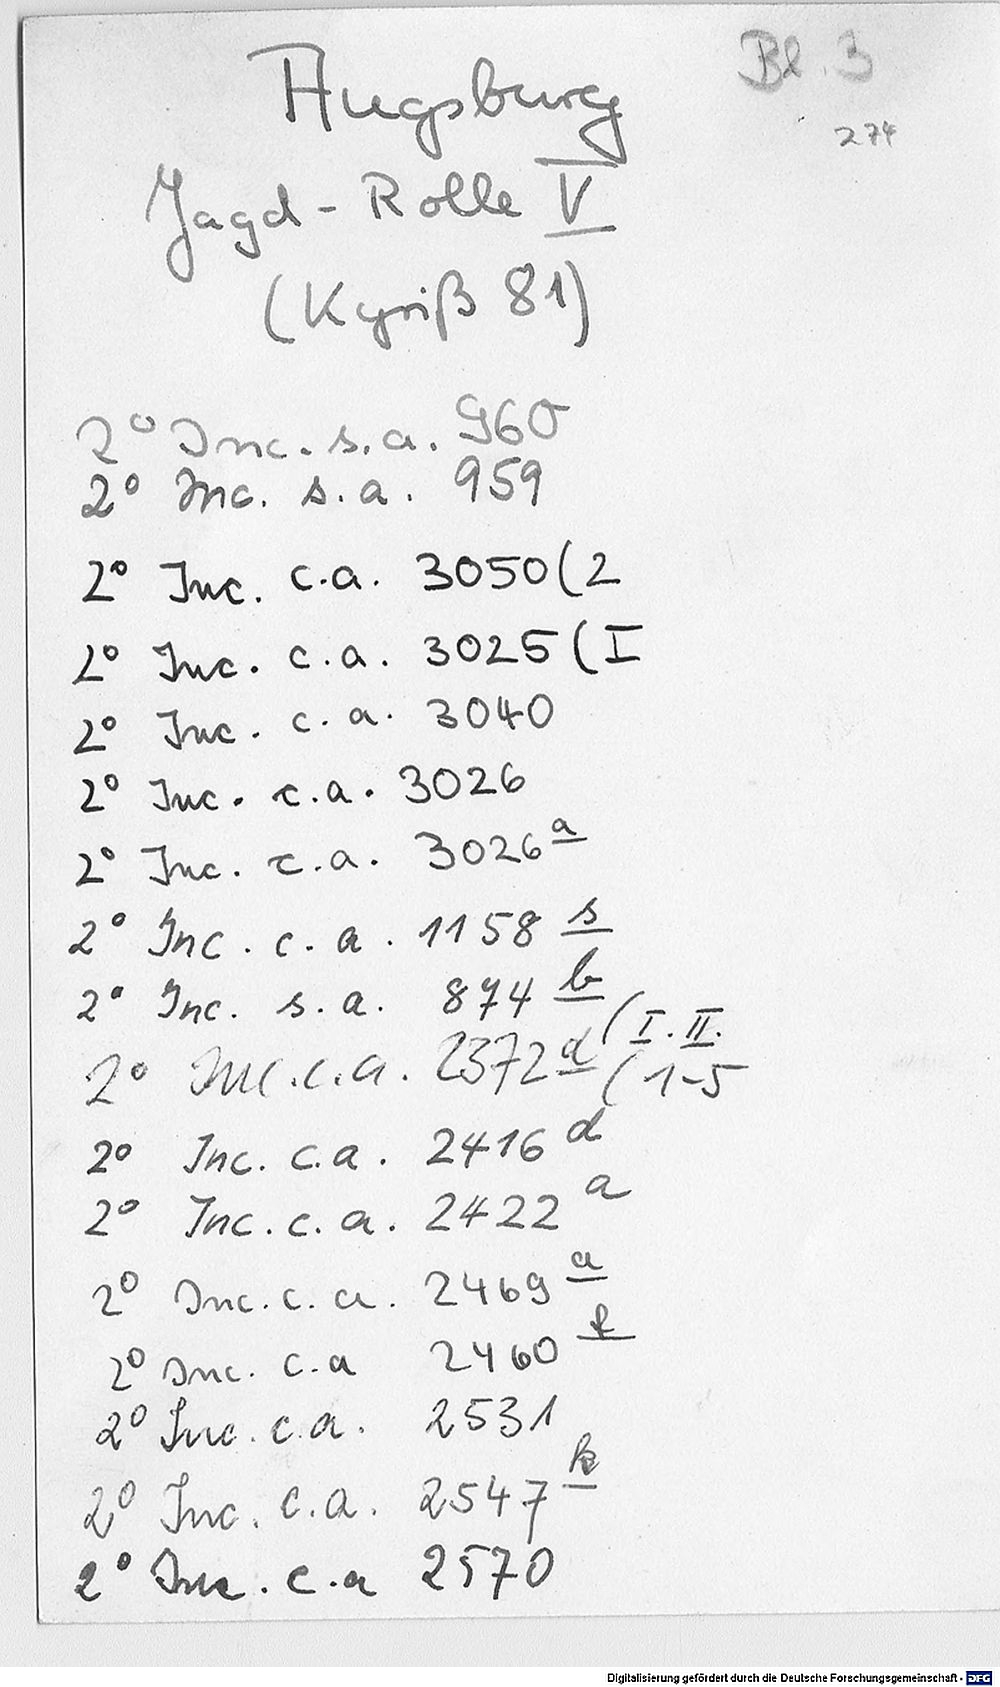 Bl. 3
274
Augsburg
Jagd-Rolle V
(Kyriß 81)
2° Inc. s.a. 960
2° Inc. s.a. 959
2° Inc. c.a. 3050(2
2° Inc. c.a. 3025(I
2° Inc. c.a. 3040
2° Inc. c.a. 3026
2° Inc. c.a. 3026 a
2° Inc. c.a. 1158 s
2° Inc. s.a. 874 b
2° Inc. c.a. 2372 d (I. II.
(1-5
2° Inc. c.a. 2416 d
2° Inc. c.a. 2422 a
2° Inc. c.a. 2469 a
2° Inc. c.a 2460
2° Inc. c.a. 2531
2° Inc. c.a. 2547 k
2° Inc. c.a 2570
Digitalisierung gefördert durch die Deutsche Forschungsgemeinschaft - DFG